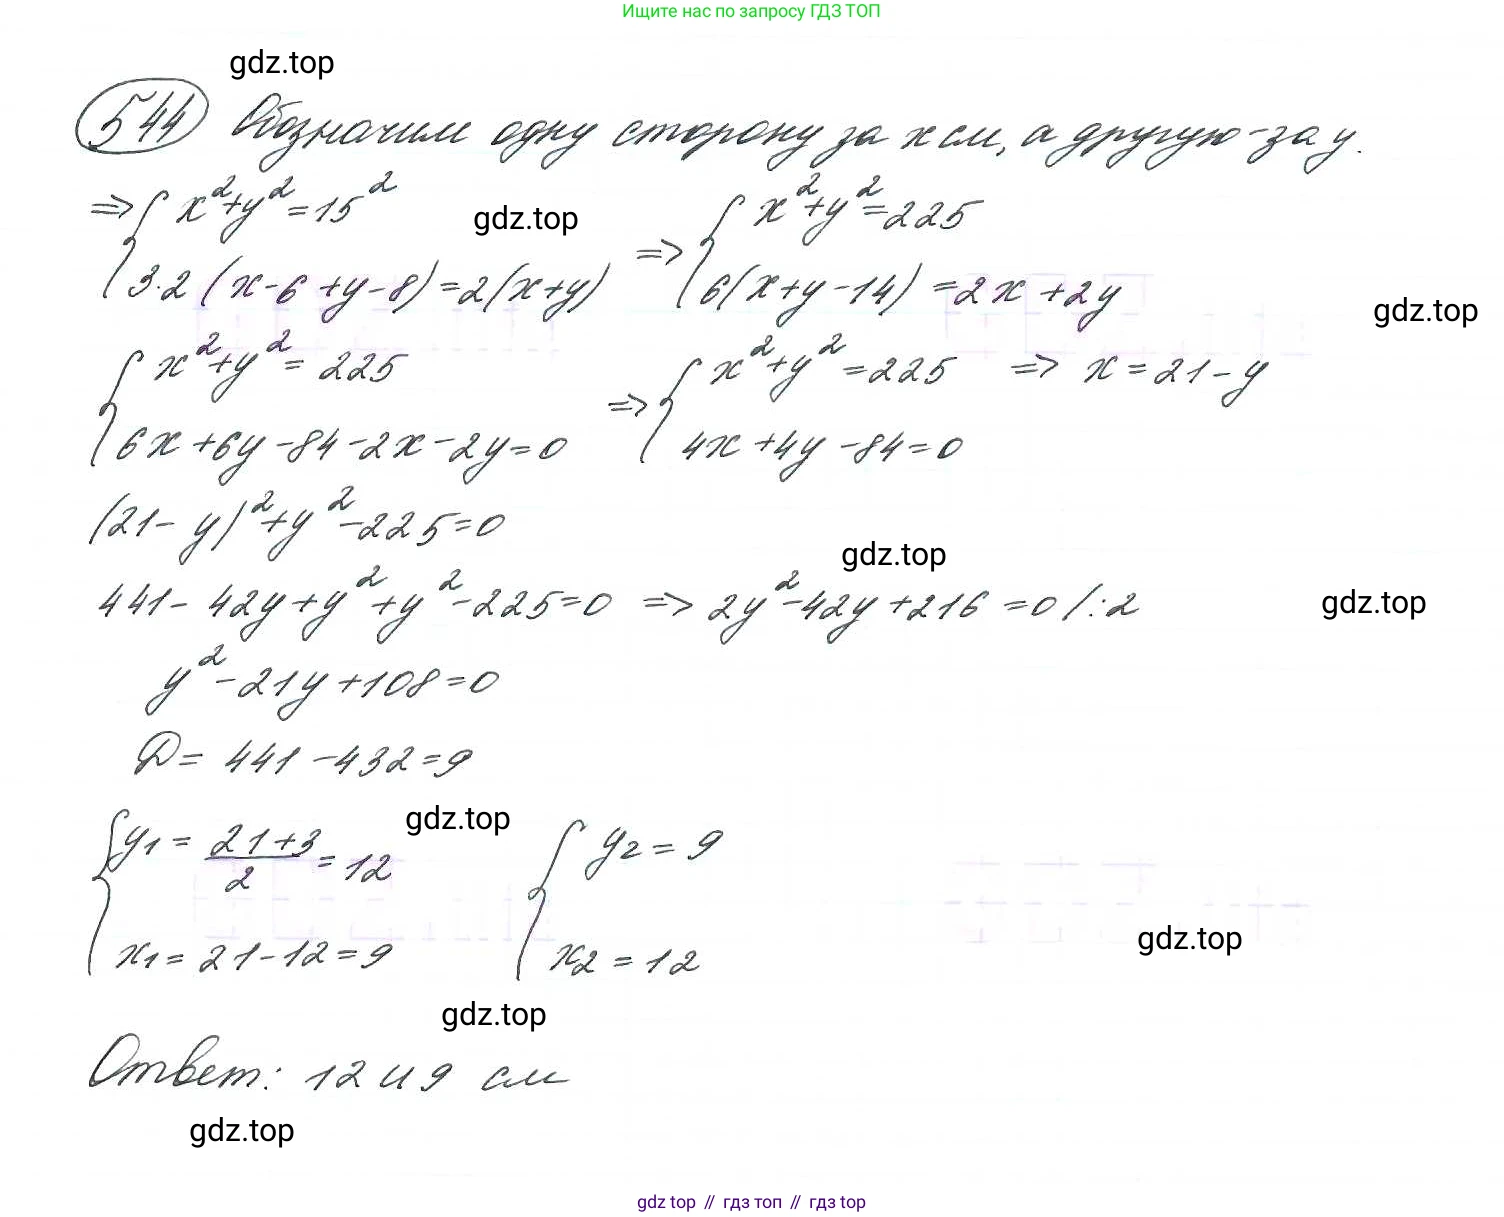 Ищите нас по запросу ГДЗ ТОП
gdz.top
544 Обозначим одну сторону за x см, а другую - за y.
⇒ { x²+y²=15² gdz.top ⇒ { x²+y²=225
3·2(x-6+y-8)=2(x+y) 6(x+y-14)=2x+2y
gdz.top
{ x²+y²=225 ⇒ { x²+y²=225 ⇒ x=21-y
6x+6y-84-2x-2y=0 4x+4y-84=0
(21-y)²+y²-225=0
gdz.top
441-42y+y²+y²-225=0 ⇒ 2y²-42y+216=0 /:2 gdz.top
y²-21y+108=0
D=441-432=9
gdz.top
{ y₁=(21+3)/2=12 { y₂=9
x₁=21-12=9 x₂=12
gdz.top
gdz.top
Ответ: 12 и 9 см
gdz.top
gdz top // гдз топ // гдз top